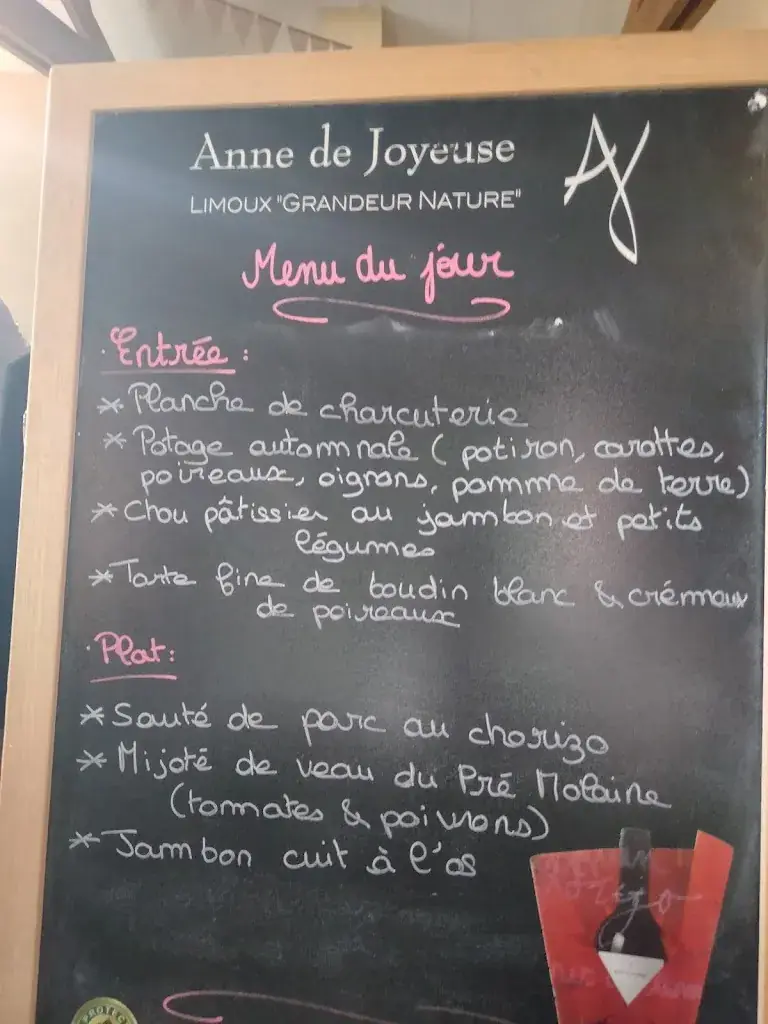 Anne de Joyeuse
AJ
LIMOUX "GRANDEUR NATURE"
Menu du jour
· Entrée :
* Planche de charcuterie
* Potage automnale ( potiron, carottes,
poireaux, oignons, pomme de terre)
* Chou pâtissier au jambon et petits
légumes
* Tarte fine de boudin blanc & crémaux
de poireaux
· Plat :
* Sauté de porc au chorizo
* Mijoté de veau du Pré Molaine
(tomates & poivrons)
* Jambon cuit à l'os
PROTECT